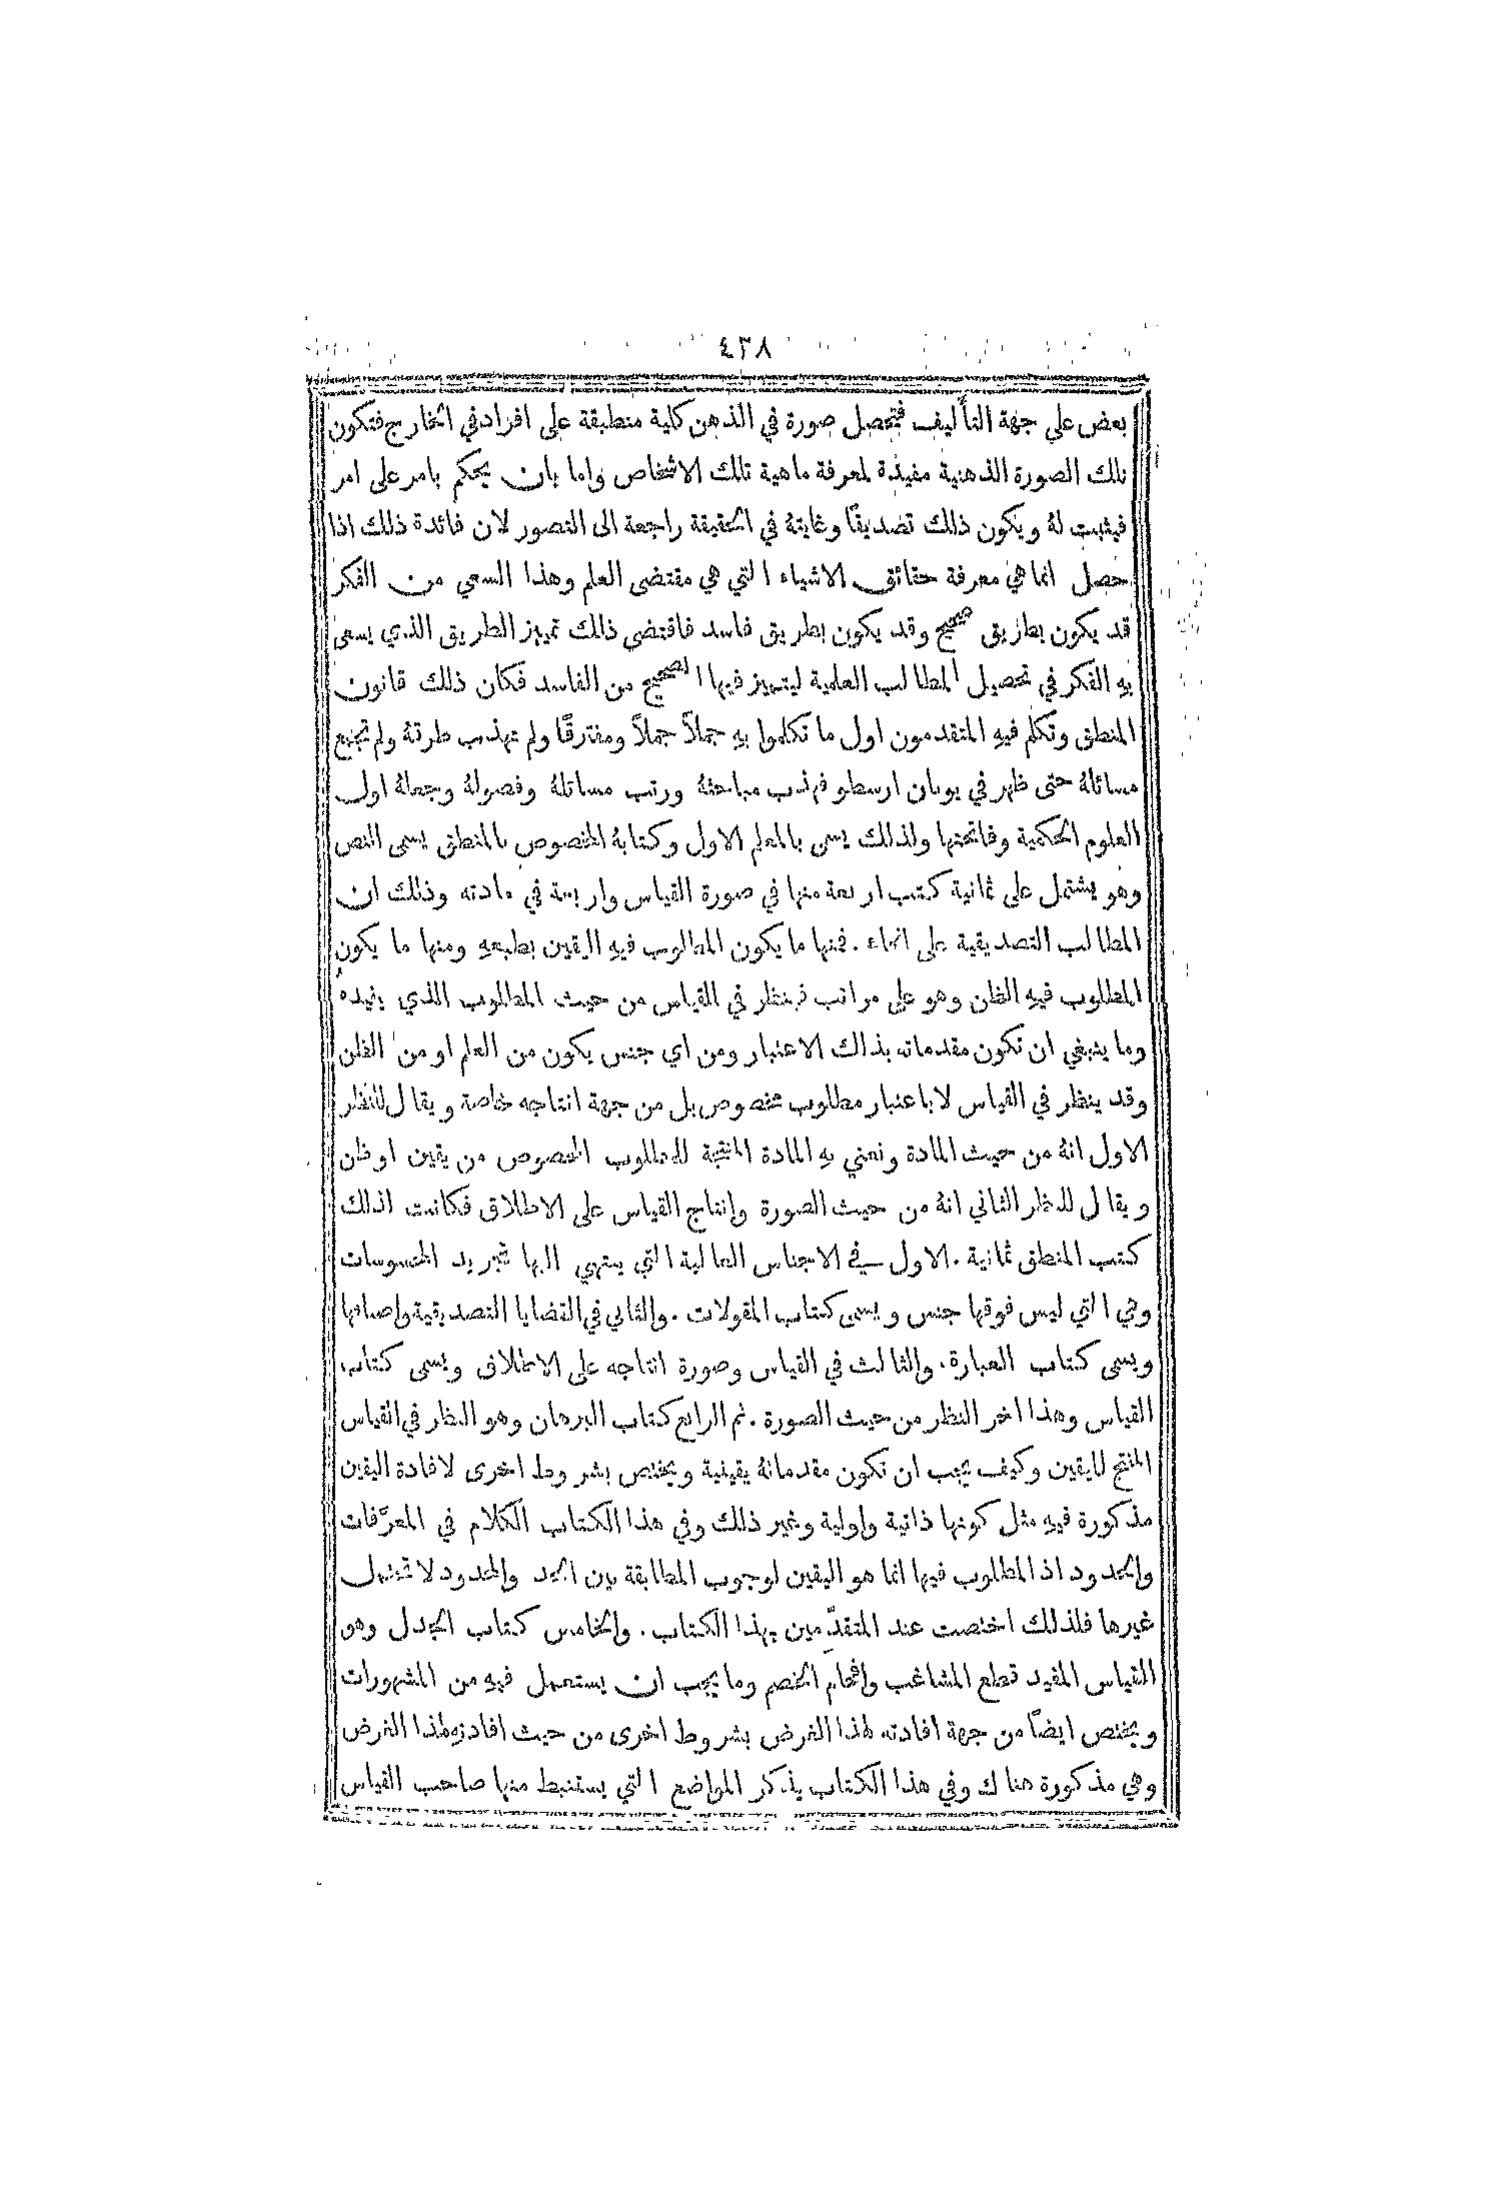 ٤٣٨
بعض على جهة التأليف فتحصل صورة في الذهن كلية منطبقة على افراد في الخارج فتكون
تلك الصورة الذهنية مفيدة لمعرفة ماهية تلك الاشخاص واما بان يحكم بامر على امر
فيثبت لهُ ويكون ذلك تصديقًا وغايتهُ في الحقيقة راجعة الى التصور لان فائدة ذلك اذا
حصل انما هي معرفة حقائق الاشياء التي هي مقتضى العلم وهذا السعي من الفكر
قد يكون بطريق صحيح وقد يكون بطريق فاسد فاقتضى ذلك تمييز الطريق الذي يسعى
بهِ الفكر في تحصيل المطالب العلمية ليتميز فيها الصحيح من الفاسد فكان ذلك قانون
المنطق وتكلم فيهِ المتقدمون اول ما تكلموا بهِ جملاً جملاً ومفترقًا ولم تهذب طرقهُ ولم تجمع
مسائلهُ حتى ظهر في يونان ارسطو فهذب مباحثهُ ورتب مسائلهُ وفصولهُ وجعلهُ اول
العلوم الحكمية وفاتحتها ولذلك يسمى بالمعلم الاول وكتابهُ المخصوص بالمنطق يسمى النص
وهو يشتمل على ثمانية كتب اربعة منها في صورة القياس واربعة في مادته وذلك ان
المطالب التصديقية على انحاء . فمنها ما يكون المطلوب فيهِ اليقين بطبعهِ ومنها ما يكون
المطلوب فيهِ الظن وهو على مراتب فينظر في القياس من حيث المطلوب الذي يفيدهُ
وما ينبغي ان تكون مقدماته بذلك الاعتبار ومن اي جنس يكون من العلم او من الظن
وقد ينظر في القياس لا باعتبار مطلوب مخصوص بل من جهة انتاجه خاصة ويقال للنظر
الاول انهُ من حيث المادة ونعني بهِ المادة المنتجة للمطلوب المخصوص من يقين او ظن
ويقال للنظر الثاني انهُ من حيث الصورة وانتاج القياس على الاطلاق فكانت لذلك
كتب المنطق ثمانية . الاول في الاجناس العالية التي ينتهي اليها تجريد المحسوسات
وهي التي ليس فوقها جنس ويسمى كتاب المقولات . والثاني في القضايا التصديقية واصنافها
ويسمى كتاب العبارة . والثالث في القياس وصورة انتاجه على الاطلاق ويسمى كتاب
القياس وهذا اخر النظر من حيث الصورة . ثم الرابع كتاب البرهان وهو النظر في القياس
المنتج لليقين وكيف يجب ان تكون مقدماتهُ يقينية ويختص بشروط اخرى لافادة اليقين
مذكورة فيهِ مثل كونها ذاتية واولية وغير ذلك وفي هذا الكتاب الكلام في المعرّفات
والحدود اذ المطلوب فيها انما هو اليقين لوجوب المطابقة بين الحد والمحدود لا تحتمل
غيرها فلذلك اختصت عند المتقدّمين بهذا الكتاب . والخامس كتاب الجدل وهو
القياس المفيد قطع المشاغب وافحام الخصم وما يجب ان يستعمل فيهِ من المشهورات
ويختص ايضًا من جهة افادته لهذا الغرض بشروط اخرى من حيث افادتهِ لهذا الغرض
وهي مذكورة هناك وفي هذا الكتاب يذكر المواضع التي يستنبط منها صاحب القياس